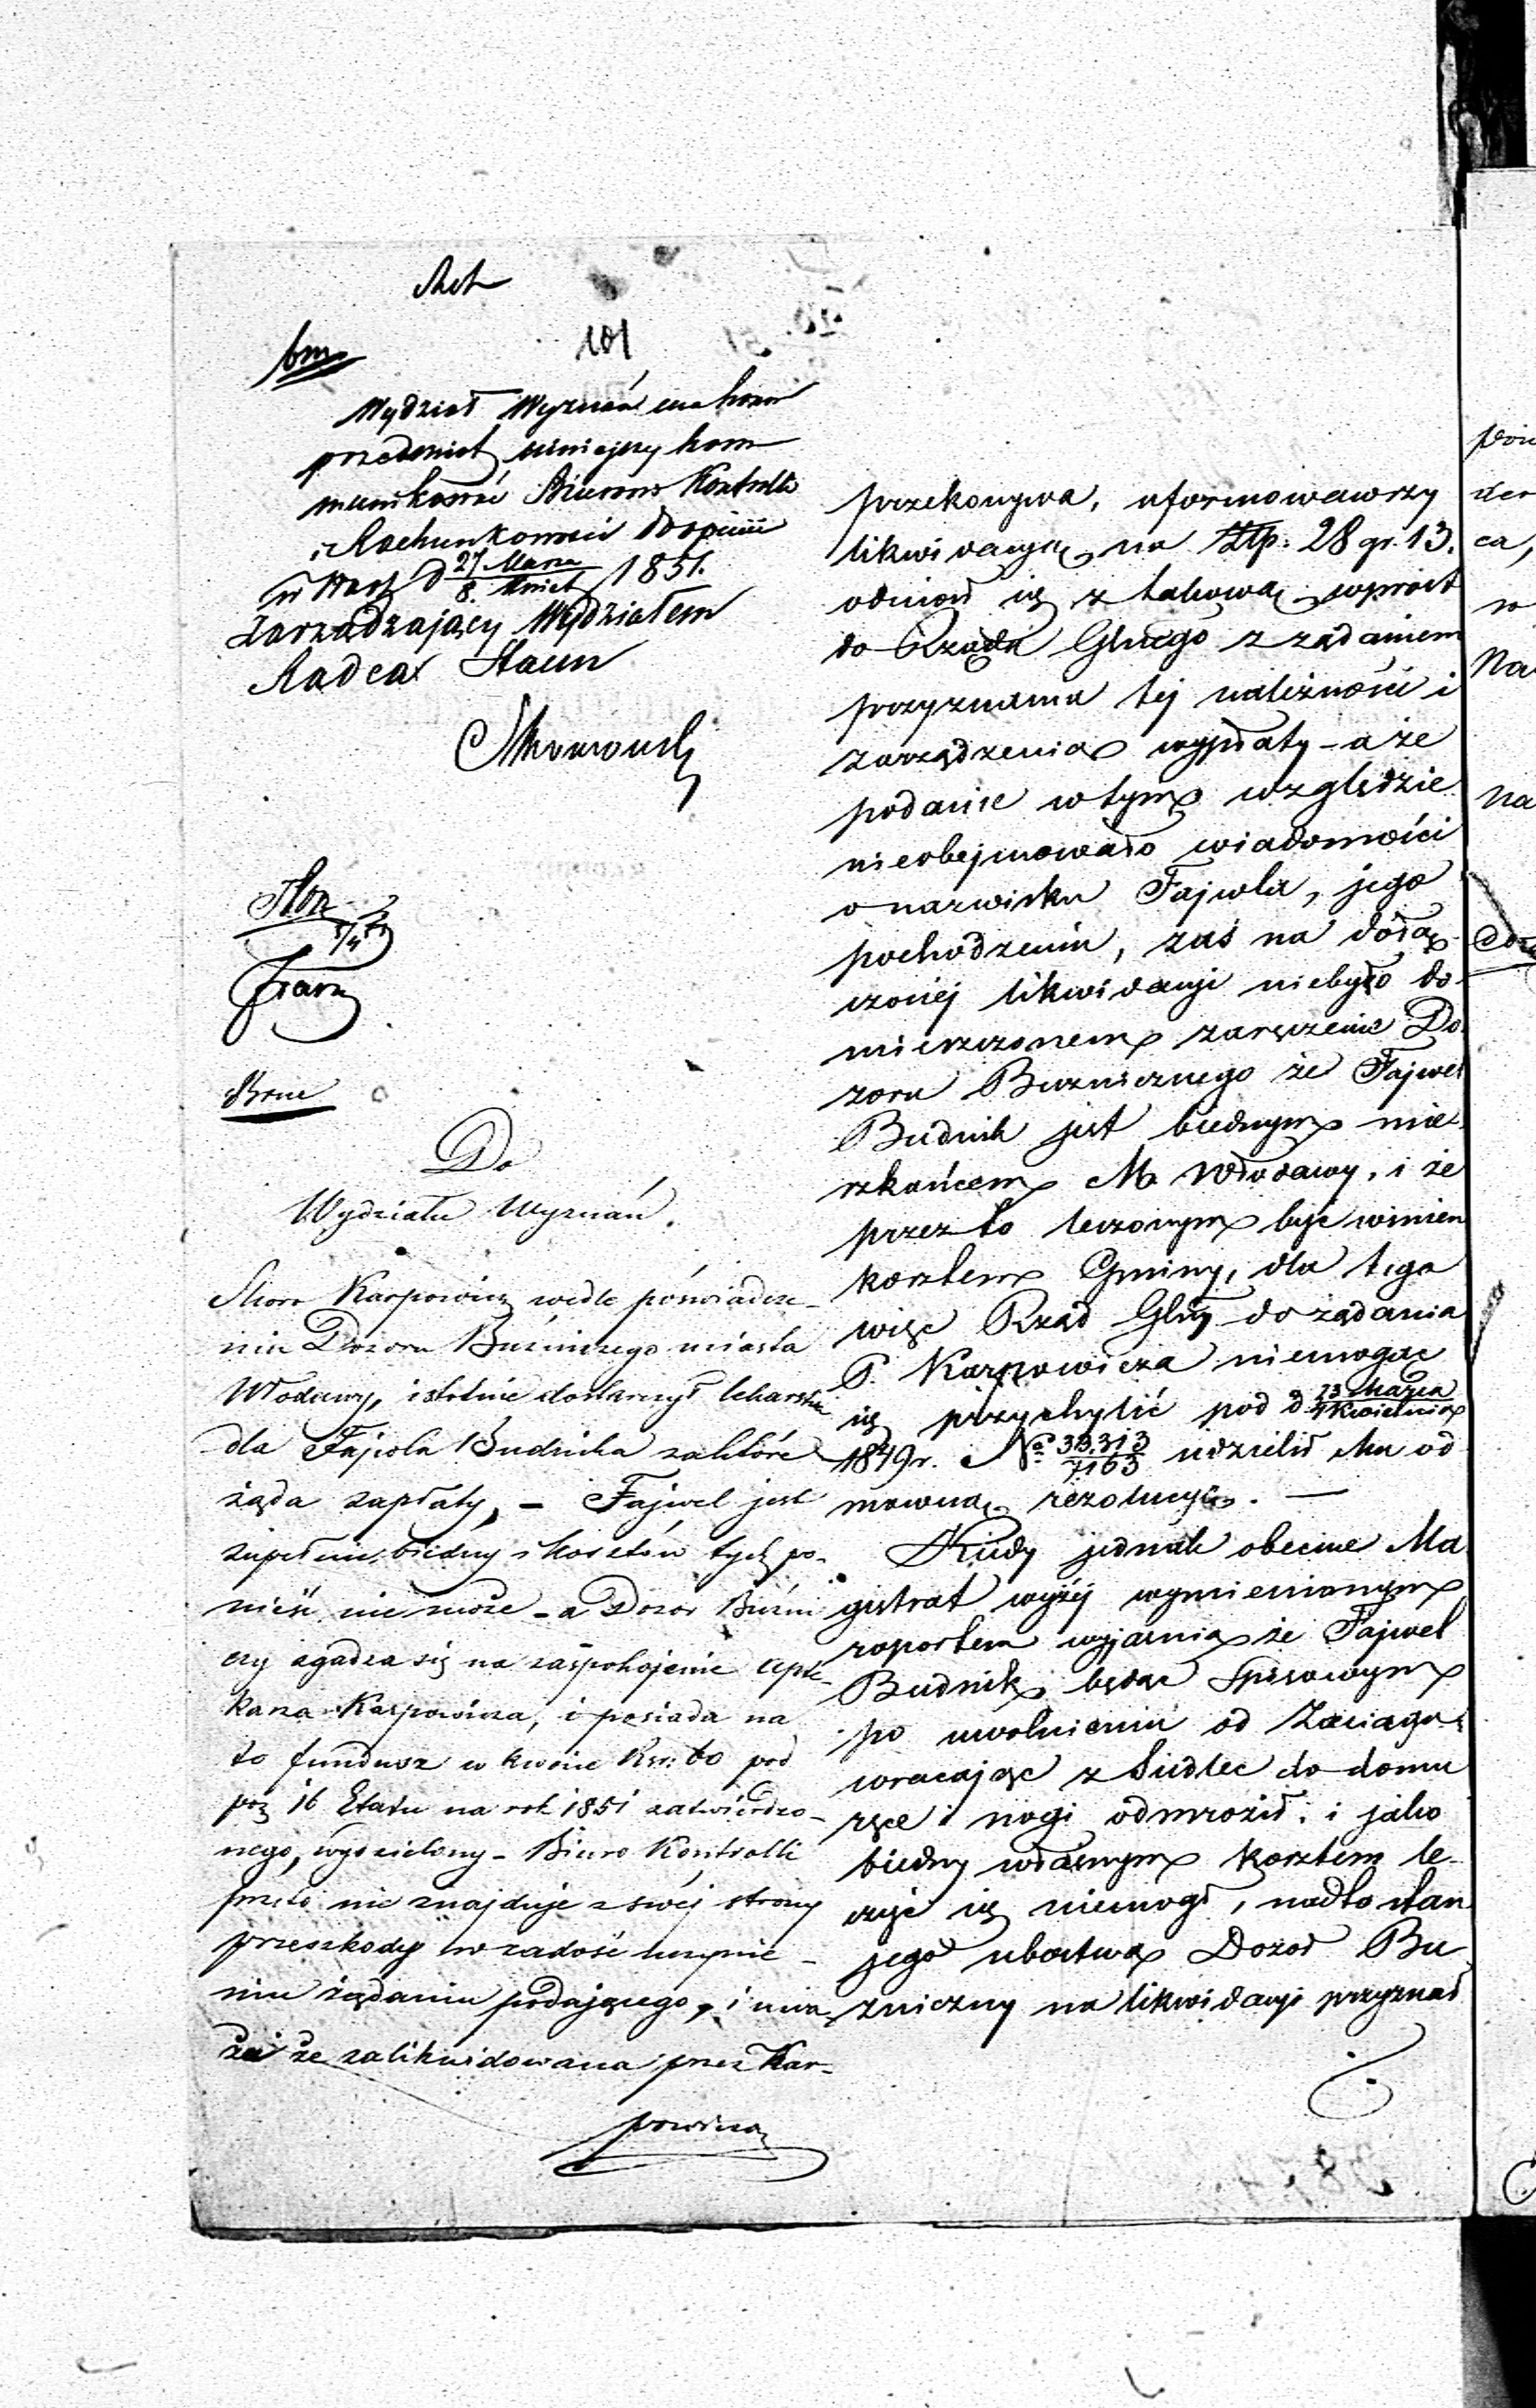 101
Wydział Wyznań ma honor
przedmiot niniejszy kom
munikować Biurowi Kontrolli
i Rachunkowości do opinii
w Warsz d 27 Marca / 8. Kwiet 1851.
Zarządzający Wydziałem
Radca Stanu
Do
Wydziału Wyznań.
Skoro Karpowicz wedle poświadcze-
nia Dozoru Buźniczego miasta
Włodawy, istotnie dostarczył lekarstw
dla Fajwla Budnika za które
żąda zapłaty, - Fajwel jest
zupełnie biedny i kosztów tych po-
nieść nie może - a Dozór Buźni
czy zgadza się na zaspokojenie Apte-
karza Karpowicza, i posiada na
to fundusz w kwocie Rsr: 60 pod
poz 16 Etatu na rok 1851 zatwierdzo-
nego, wydzielony - Biuro Kontrolli
przeto nie znajduje z swej strony
przeszkody w zadość uczynie-
niu żądaniu podającego, i uwa
ża że zalikwidowana przez Kar-
powicza
przekonywa, uformowawszy
likwidacyą na Złp: 28 gr. 13.
odniósł się z takową wprost
do Rządu Głnego z żądaniem
przyznania tej należności i
zarządzenia wypłaty - a że
podanie w tym względzie
nieobejmowało wiadomości
o nazwisku Fajwla, jego
pochodzeniu, zaś na dołą
czonej likwidacyi niebyło do-
mieszczonem zaręczenie Do
zoru Buzniczego że Fajwel
Budnik jest biednym mie-
szkańcem M. Włodawy, i że
przez to leczonym być winien
kosztem Gminy, dla tego
więc Rząd Głny do żądania
P. Karpowicza niemogąc
się przychylić pod d. 23 Marca / 4 Kwietnia
1849 r. No 33,313 / 7163 udzielił Mu od
mowną rezolucyą. —
Kiedy jednak obecnie Ma
gistrat wyżej wymienionym
raportem wyjaśnia że Fajwel
Budnik będąc Spisowym
po uwolnieniu od Zaciągu
wracając z Siedlec do domu
ręce i nogi odmroził, i jako
biedny własnym kosztem le-
czyć się niemógł, nadto stan
jego ubóstwa Dozór Bu
zniczny na likwidacyi przyznał